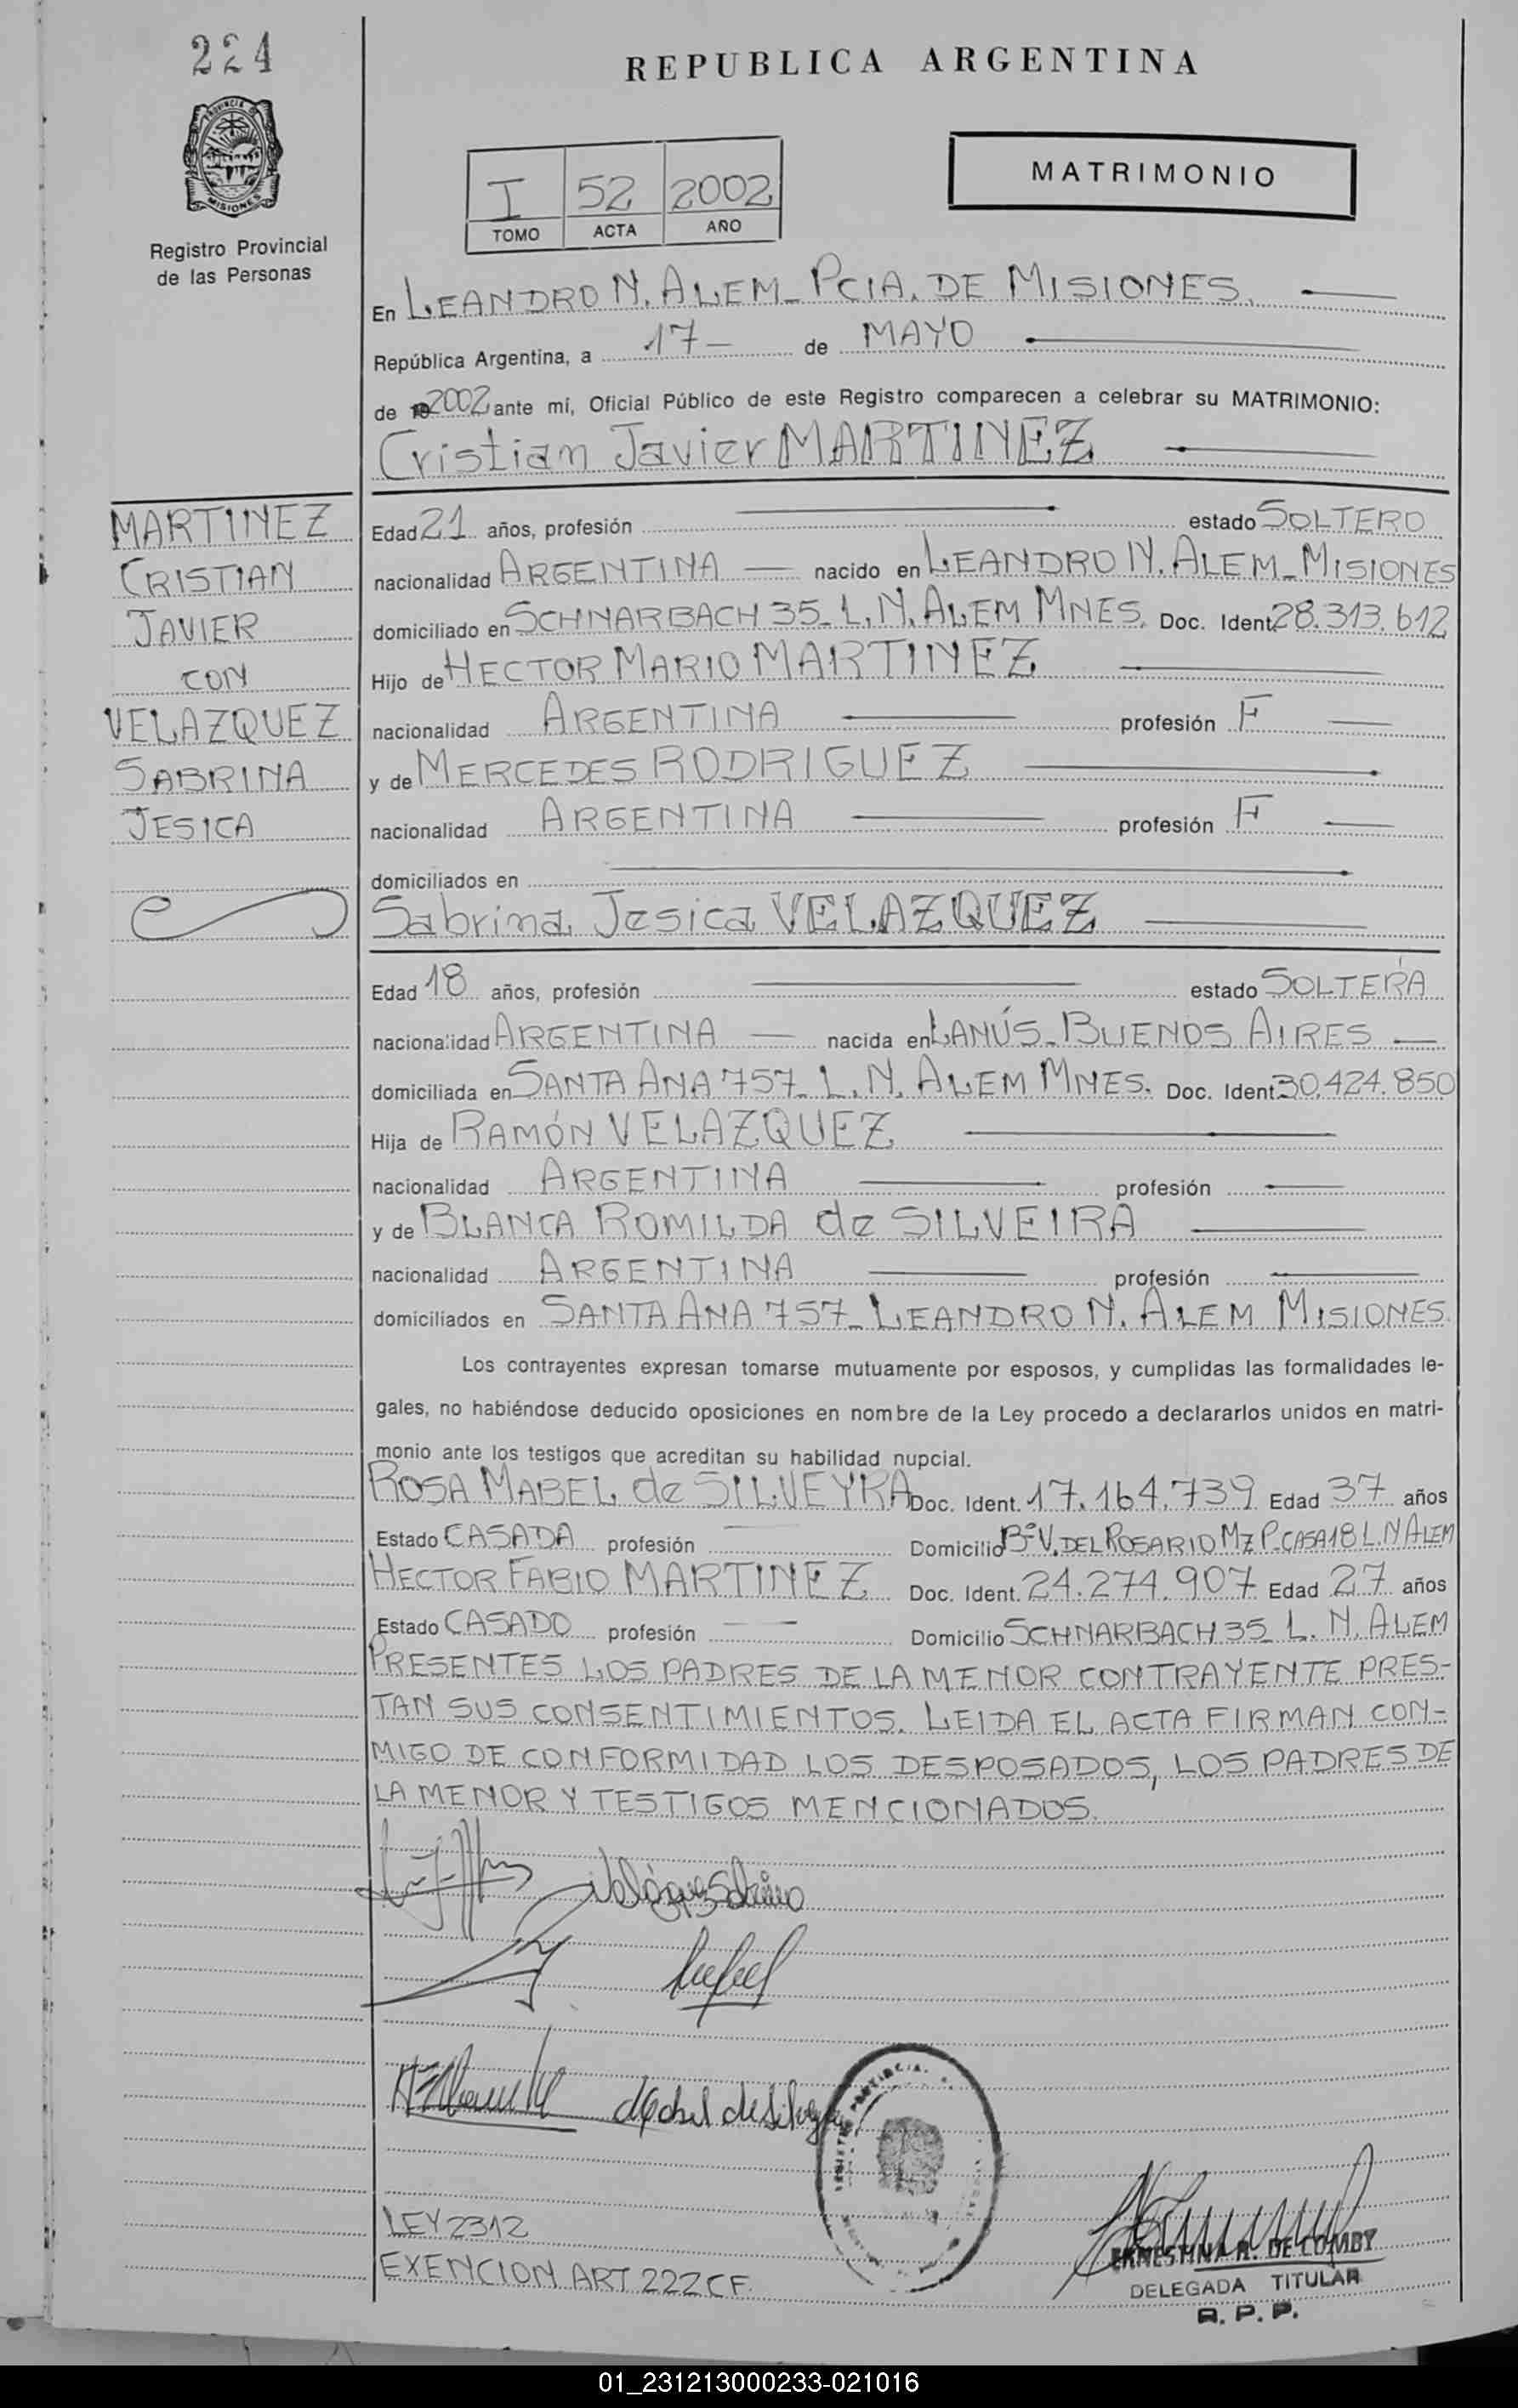 224
REPUBLICA ARGENTINA
PROVINCIA DE
MISIONES
Registro Provincial
de las Personas
I 52 2002
TOMO ACTA AÑO
MATRIMONIO
En LEANDRO N. ALEM_ PCIA. DE MISIONES.
República Argentina, a 17_ de MAYO
de 2002 ante mí, Oficial Público de este Registro comparecen a celebrar su MATRIMONIO:
Cristian Javier MARTINEZ
MARTINEZ
CRISTIAN
JAVIER
CON
VELAZQUEZ
SABRINA
JESICA
Edad 21 años, profesión estado SOLTERO
nacionalidad ARGENTINA nacido en LEANDRO N. ALEM_ MISIONES
domiciliado en SCHNARBACH 35_ L.N. ALEM MNES. Doc. Ident. 28.313.612
Hijo de HECTOR MARIO MARTINEZ
nacionalidad ARGENTINA profesión F
y de MERCEDES RODRIGUEZ
nacionalidad ARGENTINA profesión F
domiciliados en
Sabrina Jesica VELAZQUEZ
Edad 18 años, profesión estado SOLTERA
nacionalidad ARGENTINA nacida en LANÚS_ BUENOS AIRES
domiciliada en SANTA ANA 757_ L.N. ALEM MNES. Doc. Ident. 30.424.850
Hija de RAMÓN VELAZQUEZ
nacionalidad ARGENTINA profesión
y de BLANCA ROMILDA de SILVEIRA
nacionalidad ARGENTINA profesión
domiciliados en SANTA ANA 757_ LEANDRO N. ALEM MISIONES
Los contrayentes expresan tomarse mutuamente por esposos, y cumplidas las formalidades le-
gales, no habiéndose deducido oposiciones en nombre de la Ley procedo a declararlos unidos en matri-
monio ante los testigos que acreditan su habilidad nupcial.
ROSA MABEL de SILVEYRA Doc. Ident. 17.164.739 Edad 37 años
Estado CASADA profesión Domicilio Bº V. DEL ROSARIO Mz P_ CASA 18 L.N ALEM
HECTOR FABIO MARTINEZ Doc. Ident. 24.274.907 Edad 27 años
Estado CASADO profesión Domicilio SCHNARBACH 35_ L. N. ALEM
PRESENTES LOS PADRES DE LA MENOR CONTRAYENTE PRES-
TAN SUS CONSENTIMIENTOS. LEIDA EL ACTA FIRMAN CON-
MIGO DE CONFORMIDAD LOS DESPOSADOS, LOS PADRES DE
LA MENOR Y TESTIGOS MENCIONADOS.
LEY 2312
EXENCION ART 222 C F.
ERNESTINA R. DE LOMBY
DELEGADA TITULAR
R. P. P.
01_231213000233-021016